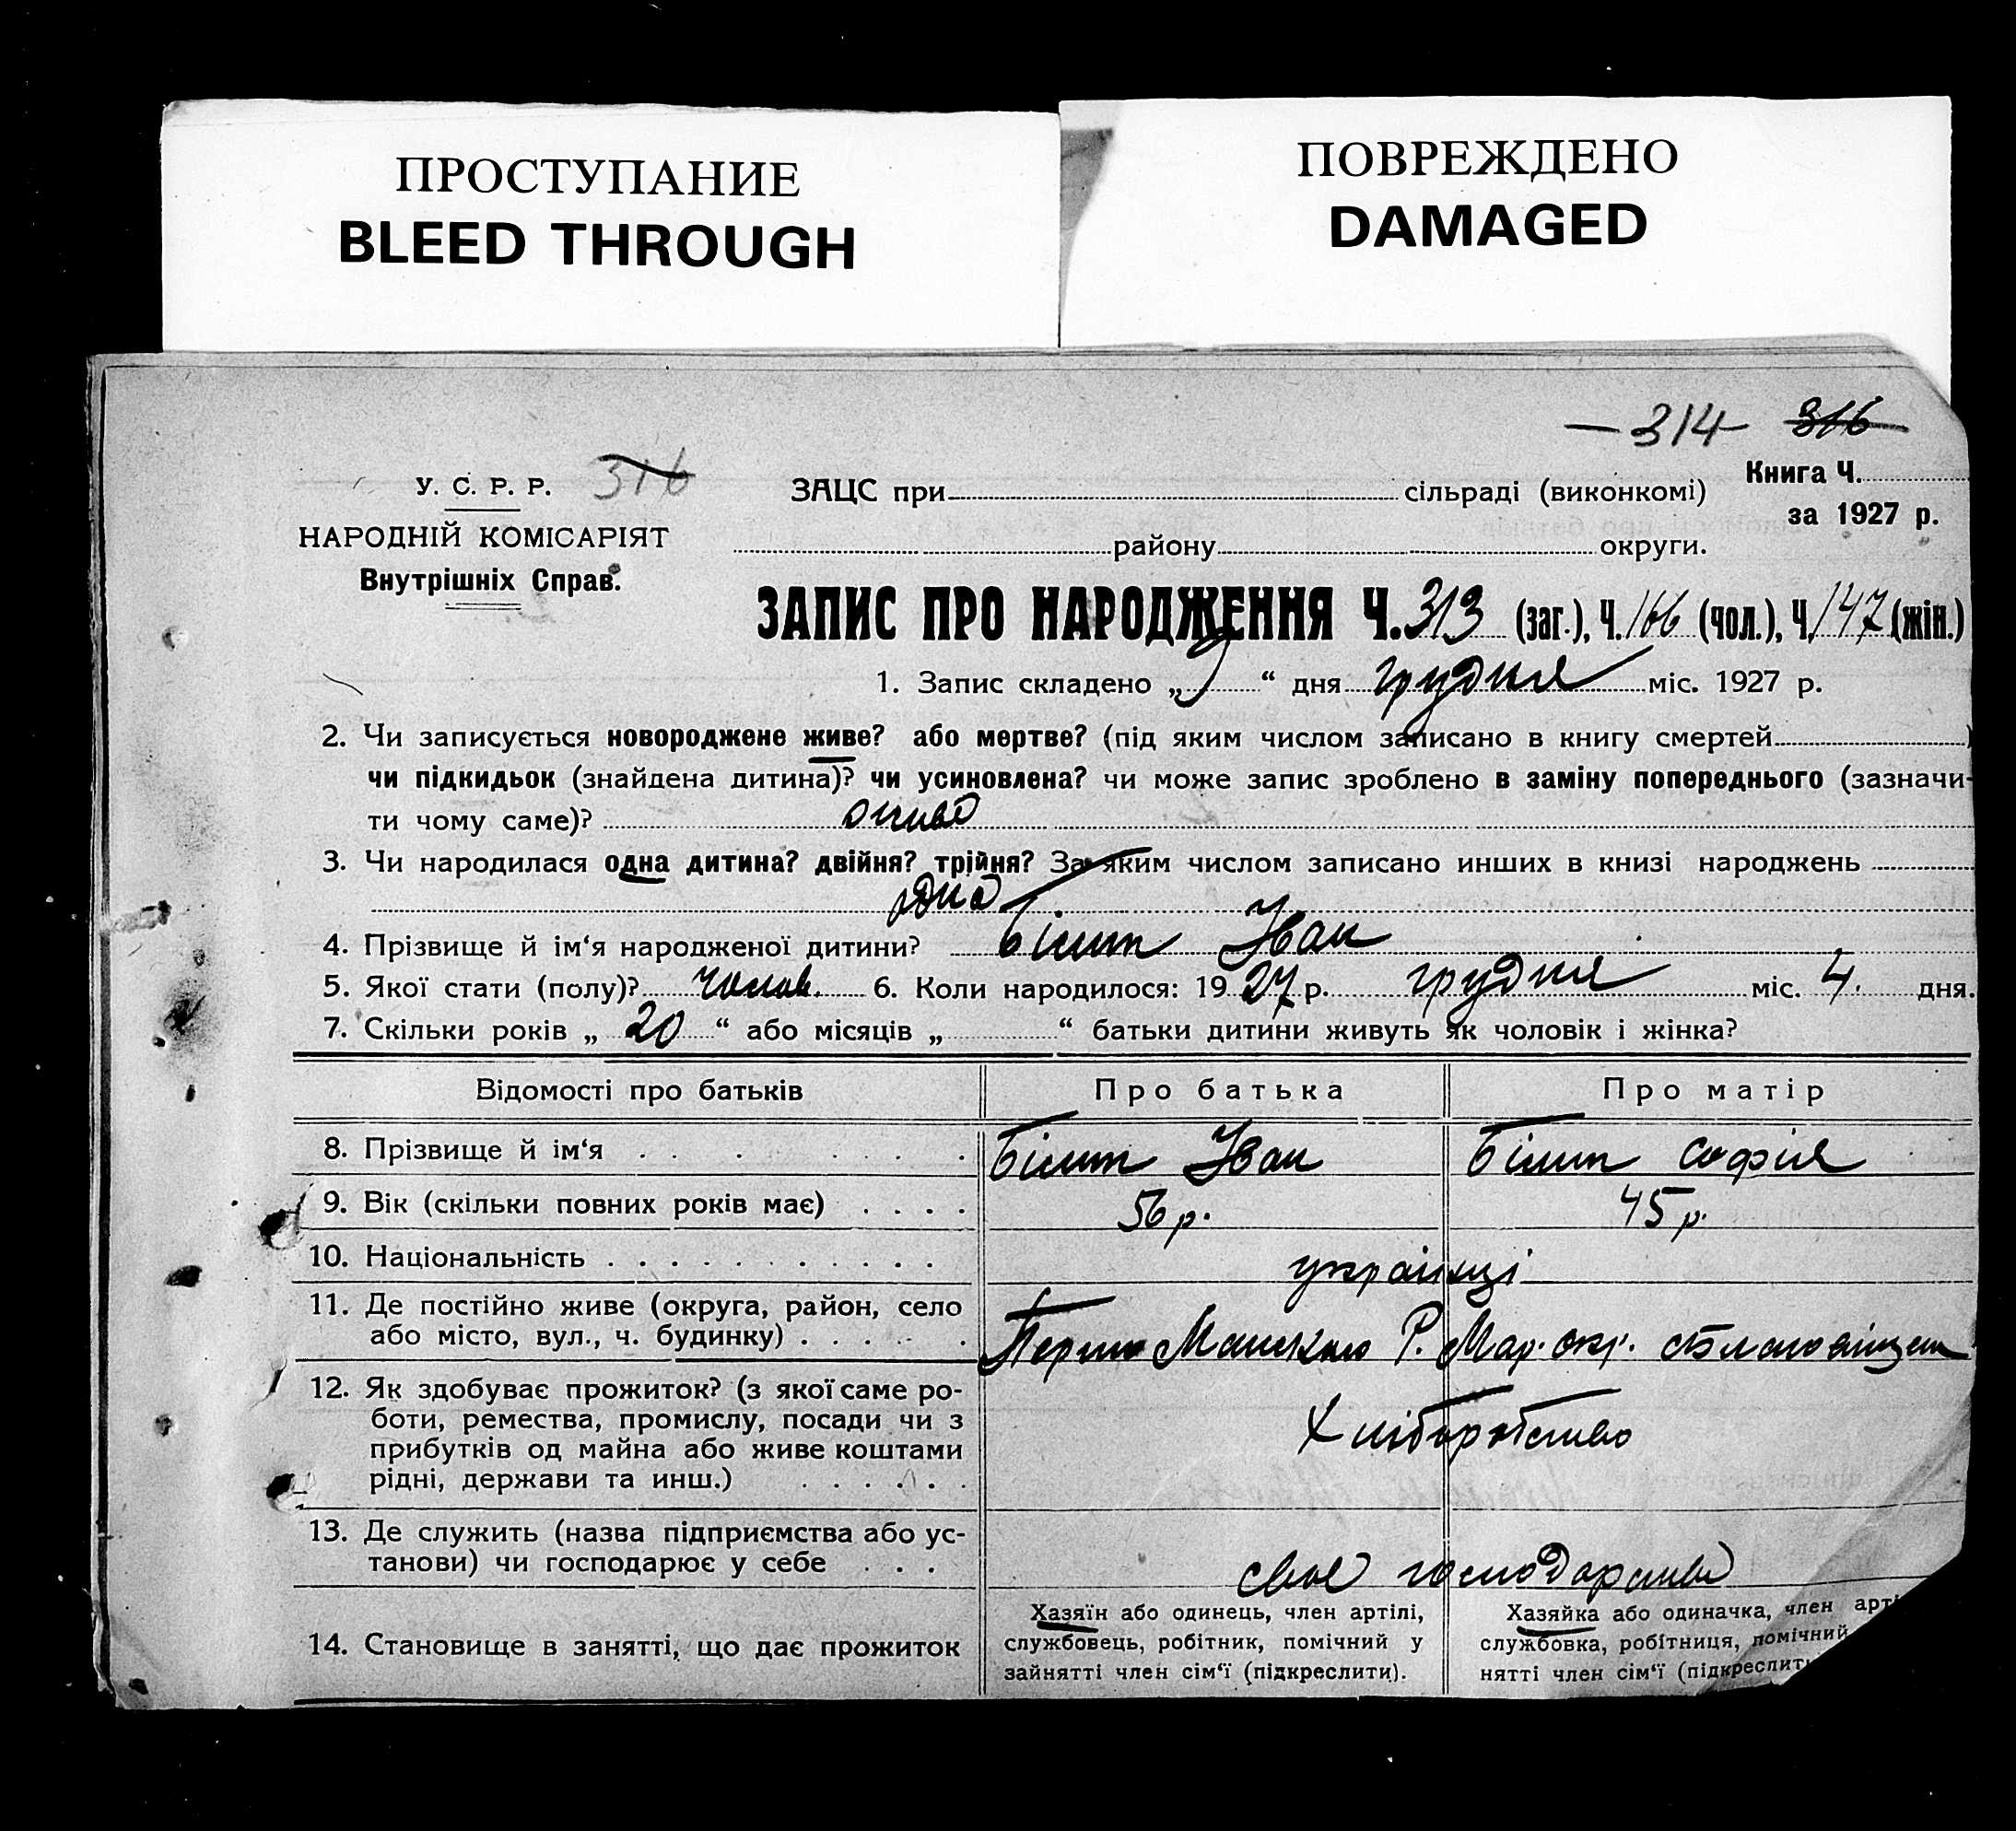 ПРОСТУПАНИЕ
BLEED THROUGH
ПОВРЕЖДЕНО
DAMAGED
—314— 316
У. С. Р. Р. 316
НАРОДНІЙ КОМІСАРІЯТ
Внутрішніх Справ.
ЗАЦС при сільраді (виконкомі)
Книга Ч.
за 1927 р.
району округи.
ЗАПИС ПРО НАРОДЖЕННЯ Ч. 313 (заг.), Ч. 166 (чол.), Ч. 147 (жін.)
1. Запис складено „ 9 “ дня грудня міс. 1927 р.
2. Чи записується новороджене живе? або мертве? (під яким числом записано в книгу смертей )
чи підкидьок (знайдена дитина)? чи усиновлена? чи може запис зроблено в заміну попереднього (зазначи-
ти чому саме)? живе
3. Чи народилася одна дитина? двійня? трійня? За яким числом записано инших в книзі народжень
одна
4. Прізвище й ім‘я народженої дитини? Іван
5. Якої стати (полу)? чолов. 6. Коли народилося: 19 27 р. грудня міс. 4. дня.
7. Скільки років „ 20 “ або місяців „ “ батьки дитини живуть як чоловік і жінка?
Відомості про батьків Про батька Про матір
8. Прізвище й ім‘я Іван Софія
9. Вік (скільки повних років має) 56 р. 45 р.
10. Національність українці
11. Де постійно живе (округа, район, село
або місто, вул., ч. будинку) Р. Мар. окр.
12. Як здобуває прожиток? (з якої саме ро-
боти, ремества, промислу, посади чи з
прибутків од майна або живе коштами
рідні, держави та инш.)
Хліборобство
13. Де служить (назва підприємства або ус-
танови) чи господарює у себе
своє господарство
14. Становище в занятті, що дає прожиток
Хазяїн або одинець, член артілі,
службовець, робітник, помічний у
зайнятті член сім‘ї (підкреслити).
Хазяйка або одиначка, член арті
службовка, робітниця, помічний
нятті член сім‘ї (підкреслит